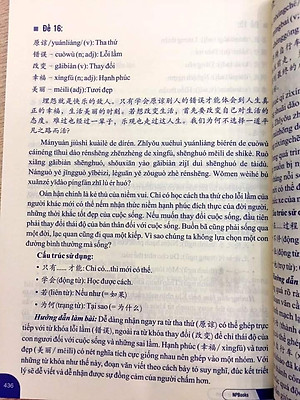 ■ Đề 16:
原谅 /yuánliàng/ (v): Tha thứ
错误 – cuòwù (n; adj): Lỗi lầm
改变 – gǎibiàn (v): Thay đổi
幸福 – xìngfú (n; adj): Hạnh phúc
美丽 – měilì (adj): Tươi đẹp
埋怨就是快乐的敌人。只有学会原谅别人的错误才能体会到人生真
正的幸福，生活美丽的时刻。若想改变生活，首先要改变自己对生活的
态度。难过也经过一辈子，乐观也走过这人生。我们为何不选择一路平
凡之路而活？
Mányuàn jiùshì kuàilè de dírén. Zhǐyǒu xuéhuì yuánliàng biérén de cuòwù
cáinéng tǐhuì dào rénshēng zhēnzhèng de xìngfú, shēnghuó měilì de shíkè. Ruò
xiǎng gǎibiàn shēnghuó, shǒuxiān yào gǎibiàn zìjǐ duì shēnghuó de tàidù.
Nánguò yě jīngguò yībèizi, lèguān yě zǒuguò zhè rénshēng. Wǒmen wèihé bù
xuǎnzé yīlào píngfán zhī lù ér huó?
Oán hận chính là kẻ thù của niềm vui. Chỉ có học cách tha thứ cho lỗi lầm của
người khác mới có thể nếm nhận thức niềm hạnh phúc đích thực của đời người,
những thời khắc tốt đẹp của cuộc sống. Nếu muốn thay đổi cuộc sống, đầu tiên
phải thay đổi thái độ của bản thân đối với cuộc sống. Buồn bã cũng phải sống qua
một đời, lạc quan cũng đi qua một kiếp. Vì sao chúng ta không lựa chọn một con
đường bình thường mà sống?
Cấu trúc sử dụng:
• 只有…… 才能: Chỉ có...thì mới có thể.
• 学会 (động từ): Học được cách.
• 若 (liên từ): Nếu như (= 如果)
• 为何 (trạng từ): Tại sao (= 为什么)
Hướng dẫn làm bài: Dễ dàng nhận ngay ra từ tha thứ (原谅) có thể ghép trực
tiếp với từ khóa lỗi lầm (错误), ngoài ra từ khóa thay đổi (改变) để chỉ thái độ của
con người đối với cuộc sống và những sai lầm. Hạnh phúc (幸福) và tươi
đẹp (美丽) có nét nghĩa tích cực giống nhau nên ghép vào một nhóm. Với
những từ khóa như thế này, đoạn văn viết theo cách bày tỏ suy nghĩ, đúc kết triết
lý sẽ dễ viết và dễ nhận được sự đồng cảm của người chấm hơn.
436
MPBooks